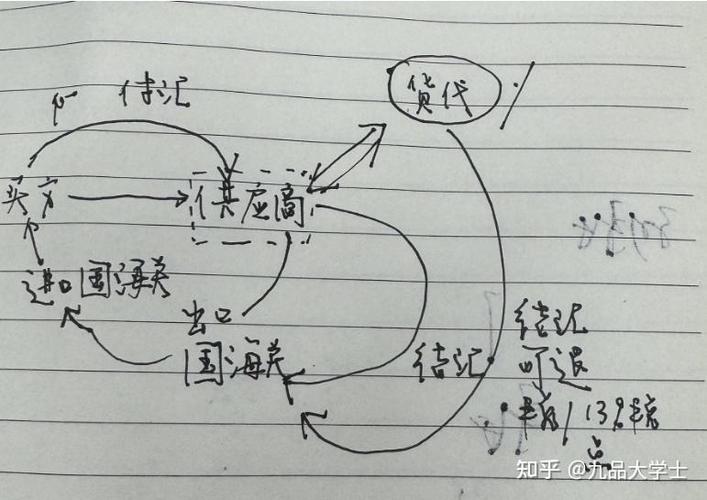 货代
付汇
买方
供应商
进口国海关
出口
国海关
结汇
结汇
可退
13%
点
知乎 @九品大学士